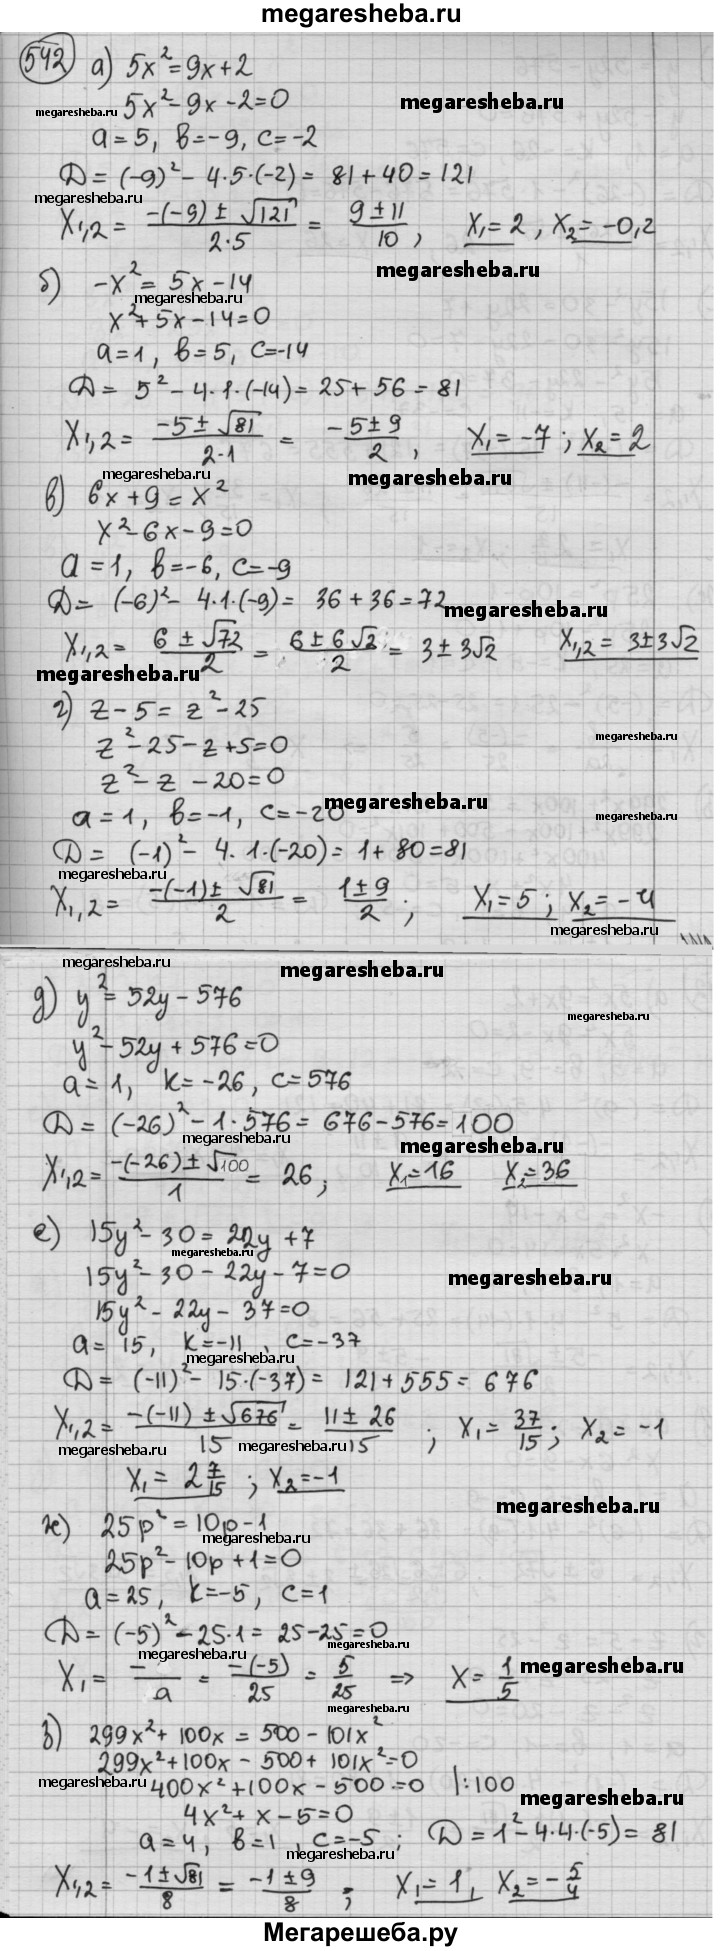 megaresheba.ru
542 а) 5x² = 9x + 2
5x² - 9x - 2 = 0
megaresheba.ru
megaresheba.ru
a = 5, в = -9, c = -2
D = (-9)² - 4·5·(-2) = 81 + 40 = 121
megaresheba.ru
X₁,₂ = (-(-9) ± √121)/(2·5) = (9 ± 11)/10, X₁ = 2, X₂ = -0,2
megaresheba.ru
б) -x² = 5x - 14
megaresheba.ru
x² + 5x - 14 = 0
a = 1, в = 5, c = -14
D = 5² - 4·1·(-14) = 25 + 56 = 81
X₁,₂ = (-5 ± √81)/(2·1) = (-5 ± 9)/2, X₁ = -7; X₂ = 2
megaresheba.ru
megaresheba.ru
в) 6x + 9 = x²
x² - 6x - 9 = 0
a = 1, в = -6, c = -9
D = (-6)² - 4·1·(-9) = 36 + 36 = 72
megaresheba.ru
X₁,₂ = (6 ± √72)/2 = (6 ± 6√2)/2 = 3 ± 3√2 X₁,₂ = 3 ± 3√2
megaresheba.ru
г) z - 5 = z² - 25
z² - 25 - z + 5 = 0
megaresheba.ru
z² - z - 20 = 0
megaresheba.ru
a = 1, в = -1, c = -20
D = (-1)² - 4·1·(-20) = 1 + 80 = 81
megaresheba.ru
X₁,₂ = (-(-1) ± √81)/2 = (1 ± 9)/2; X₁ = 5; X₂ = -4
megaresheba.ru
megaresheba.ru
megaresheba.ru
д) y² = 52y - 576
megaresheba.ru
y² - 52y + 576 = 0
a = 1, k = -26, c = 576
D = (-26)² - 1·576 = 676 - 576 = 100
megaresheba.ru
megaresheba.ru
X₁,₂ = (-(-26) ± √100)/1 = 26; X₁ = 16 X₂ = 36
е) 15y² - 30 = 22y + 7
megaresheba.ru
15y² - 30 - 22y - 7 = 0
megaresheba.ru
15y² - 22y - 37 = 0
a = 15, k = -11, c = -37
megaresheba.ru
D = (-11)² - 15·(-37) = 121 + 555 = 676
X₁,₂ = (-(-11) ± √676)/15 = (11 ± 26)/15; X₁ = 37/15; X₂ = -1
megaresheba.ru
megaresheba.ru
X₁ = 2 7/15; X₂ = -1
megaresheba.ru
ж) 25p² = 10p - 1
megaresheba.ru
25p² - 10p + 1 = 0
a = 25, k = -5, c = 1
D = (-5)² - 25·1 = 25 - 25 = 0
megaresheba.ru
megaresheba.ru
X₁ = -/a = -(-5)/25 = 5/25 => X = 1/5
megaresheba.ru
megaresheba.ru
з) 299x² + 100x = 500 - 101x²
299x² + 100x - 500 + 101x² = 0
megaresheba.ru
400x² + 100x - 500 = 0 |:100
megaresheba.ru
4x² + x - 5 = 0
a = 4, в = 1, c = -5; D = 1² - 4·4·(-5) = 81
megaresheba.ru
X₁,₂ = (-1 ± √81)/8 = (-1 ± 9)/8; X₁ = 1, X₂ = -5/4
megaresheba.ru
Мегарешеба.ру